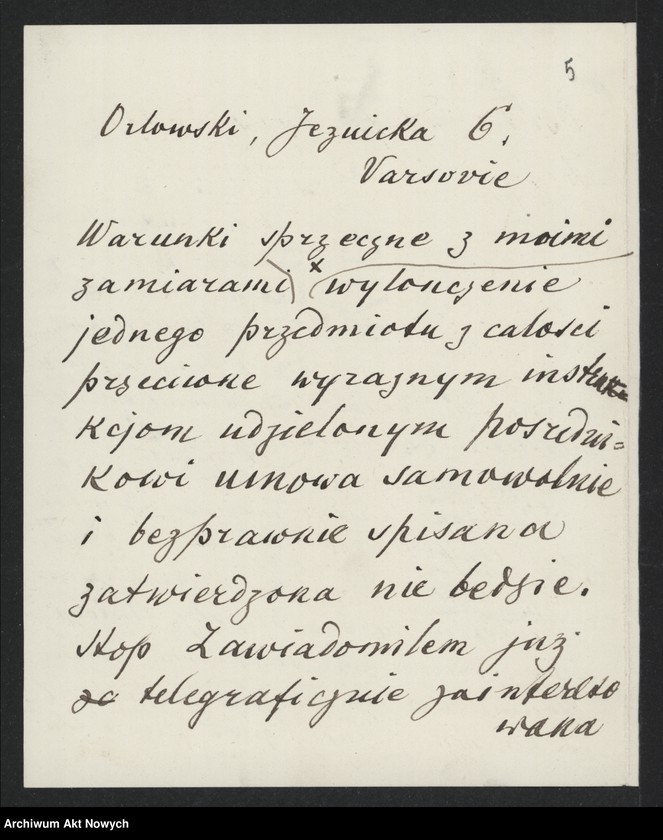 5
Orlowski, Jezuicka 6.
Varsovie
Warunki sprzeczne z moimi
zamiarami) x (wylonczenie
jednego przedmiotu z calosci
przeciwne wyraznym instruk-
kcjom udzielonym posredni=
kowi umowa samowolnie
i bezprawnie spisana
zatwierdzona nie będzie.
Stop Zawiadomilem już
telegraficznie zaintereso
wana
Archiwum Akt Nowych